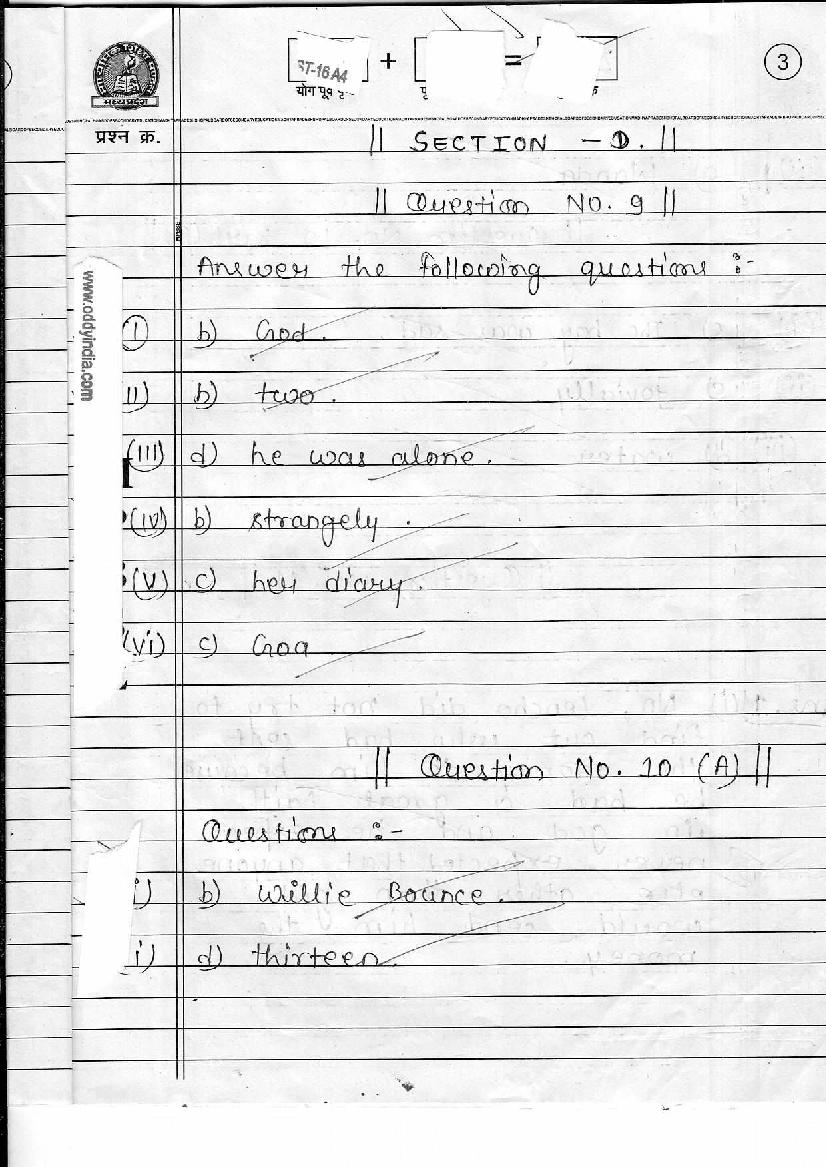 3
ST-16 A4 + =
योग पूर्व
मध्यप्रदेश
प्रश्न क्र.
|| SECTION - D. ||
|| Question No. 9 ||
Answer the following questions :-
www.oddyindia.com
(I) b) God.
II) b) two.
(III) d) he was alone.
(IV) b) strangely.
(V) c) her diary.
(vi) c) Goa
|| Question No. 10 (A) ||
Questions :-
i) b) Willie Bounce.
i) d) thirteen.